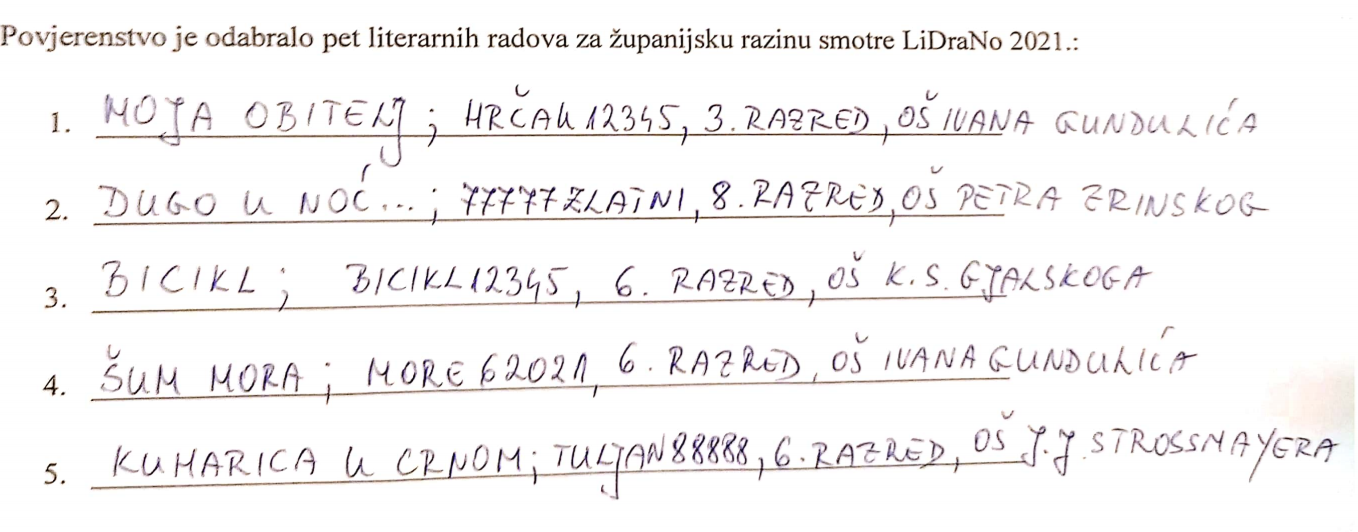 Povjerenstvo je odabralo pet literarnih radova za županijsku razinu smotre LiDraNo 2021.:
1. MOJA OBITELJ ; HRČAK 12345, 3. RAZRED, OŠ IVANA GUNDULIĆA
2. DUGO U NOĆ... ; 77777ZLATNI, 8. RAZRED, OŠ PETRA ZRINSKOG
3. BICIKL ; BICIKL12345, 6. RAZRED, OŠ K. S. GJALSKOGA
4. ŠUM MORA ; MORE62021, 6. RAZRED, OŠ IVANA GUNDULIĆA
5. KUHARICA U CRNOM ; TULJAN88888, 6. RAZRED, OŠ J.J. STROSSMAYERA